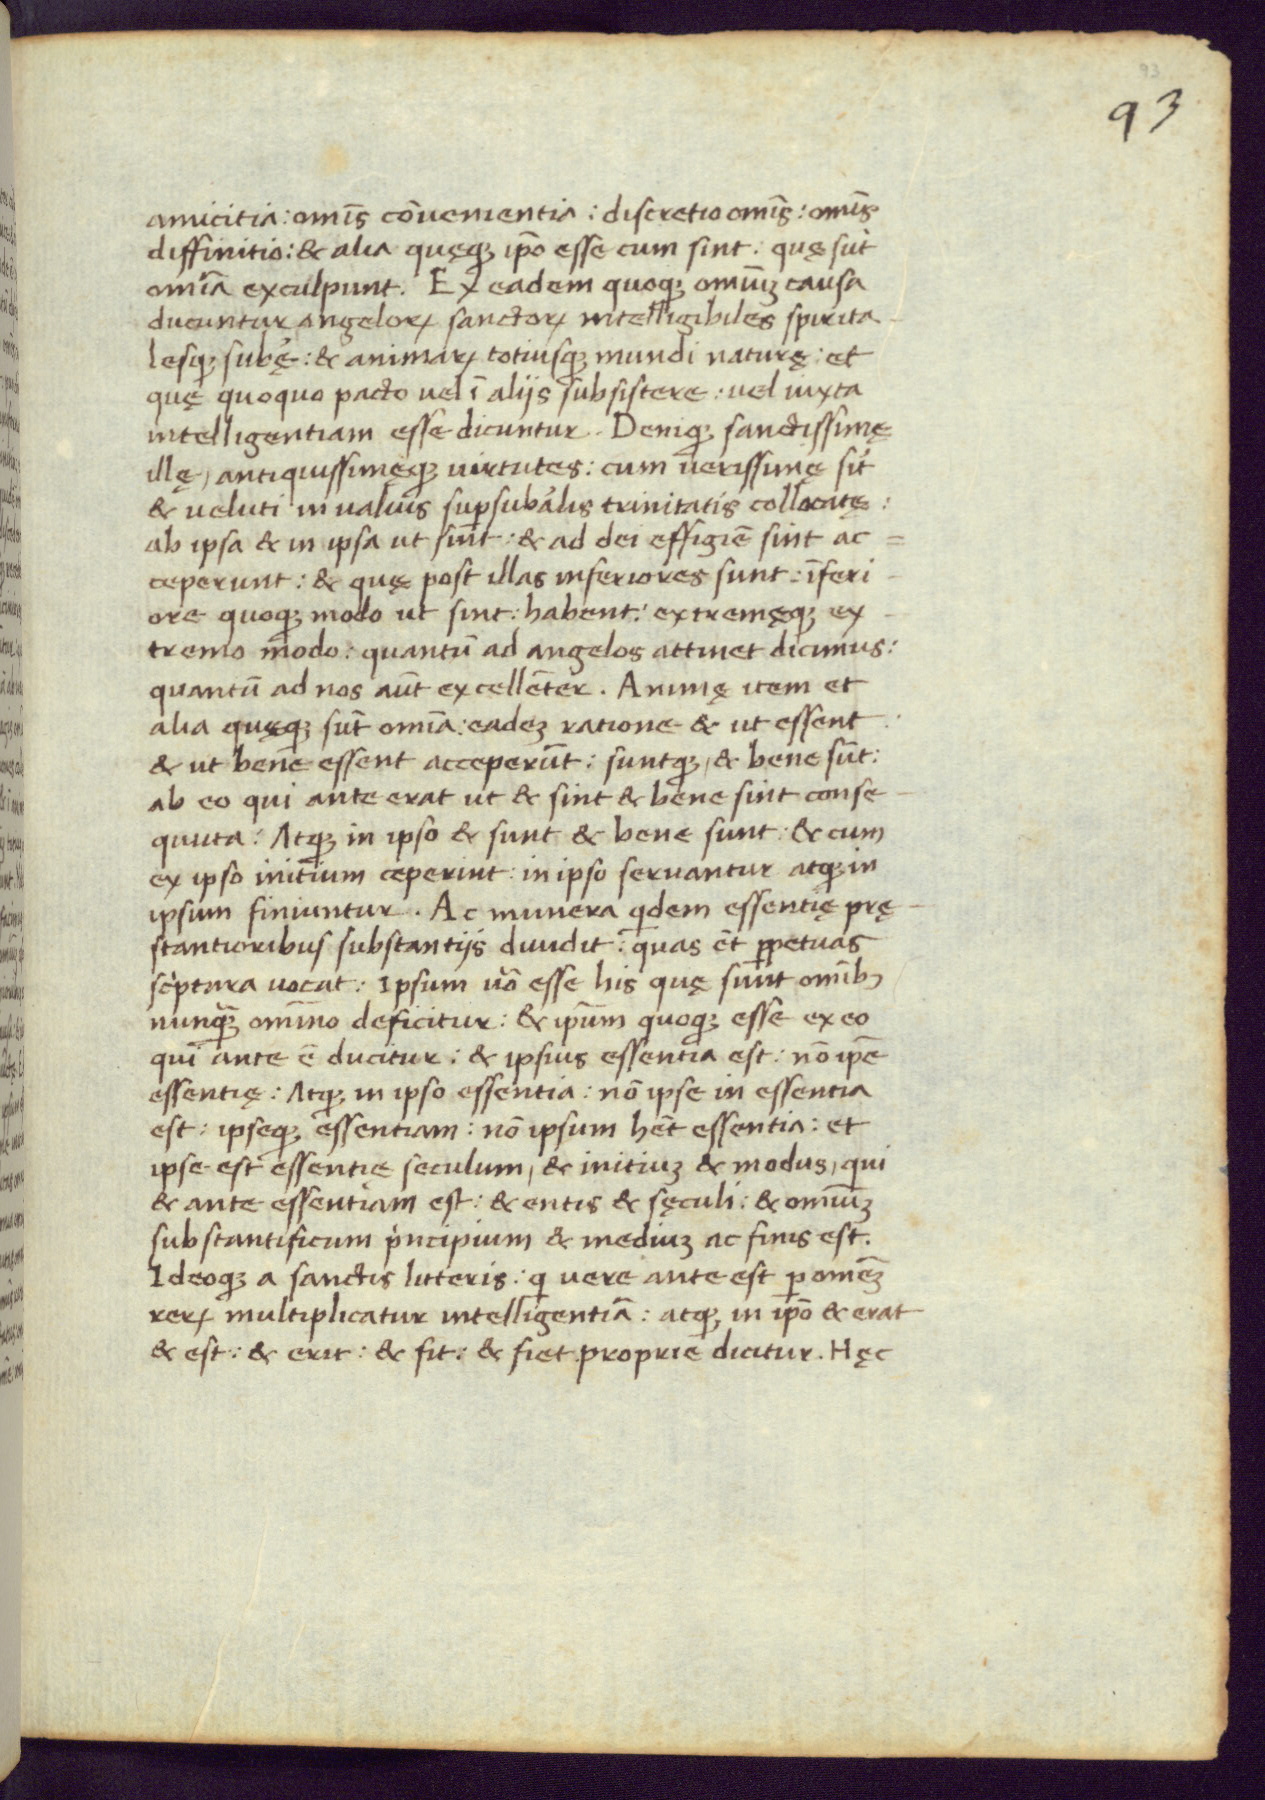 93
93
amicitia: omīs cōvenientia: discretio omīs: omīs
diffinitio: & alia quęq; ip̄o esse cum sint: quę sūt
omīa exculpunt. Ex eadem quoq; omīuȝ causa
ducuntur angeloꝝ sanctoꝝ intelligibiles spirita-
lesq; subę̄: & animaꝝ totiusq; mundi naturę: et
quę quoquo pacto vel ī alijs subsistere: vel iuxta
intelligentiam esse dicuntur. Deniq; sanctissimę
illę, antiquissimęq; virtutes: cum verissimę sīt
& veluti in valuis suꝑsubālis trinitatis collocatę:
ab ipsa & in ipsa ut sint: & ad dei effigiē sint ac=
ceperunt: & quę post illas inferiores sunt: īferi-
ore quoq; modo ut sint: habent: extremęq; ex-
tremo modo: quantū ad angelos attinet dicimus:
quantū ad nos aūt excellēter. Animę item et
alia quęq; sūt omīa: eadeȝ ratione & ut essent
& ut bene essent acceperūt: suntq;, & bene sūt:
ab eo qui ante erat ut & sint & bene sint conse-
quuta: Atq; in ipso & sunt & bene sunt: & cum
ex ipso initium ceperint: in ipso servantur atq; in
ipsum finiuntur. Ac munera qdem essentię prę-
stantioribus substantijs dividit: quas ēt ꝑpetuas
scptura vocat: Ipsum vō esse his quę sunt omībꝫ
nunq̄ȝ omīno deficitur: & ip̄um quoq; esse ex eo
qui ante ē ducitur: & ipsius essentia est: nō ip̄e
essentię: Atq; in ipso essentia: nō ipse in essentia
est: ipseq; essentiam: nō ipsum hēt essentia: et
ipse est essentię seculum, & initiuȝ & modus, qui
& ante essentiam est: & entis & sęculi: & omīuȝ
substantificum pncipium & mediuȝ ac finis est.
Ideoq; a sanctis litteris: q vere ante est ꝑ omēȝ
reꝝ multiplicatur intelligentiā: atq; in ip̄o & erat
& est: & erit: & fit: & fiet proprie dicitur. Hęc